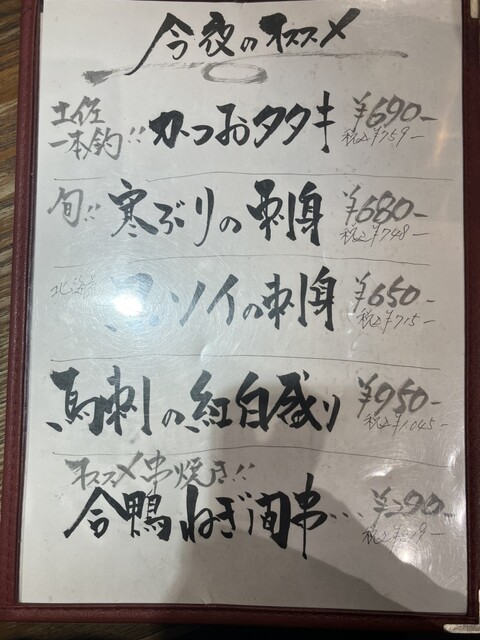 今夜のオススメ
土佐
一本釣!! かつおタタキ ¥690-
税込¥759-
旬!! 寒ぶりの刺身 ¥680-
税込¥748-
北海道 ソイの刺身 ¥650-
税込¥715-
馬刺の紅白盛り ¥950-
税込¥1045-
オススメ串焼き!!
合鴨ねぎ間串…
税込